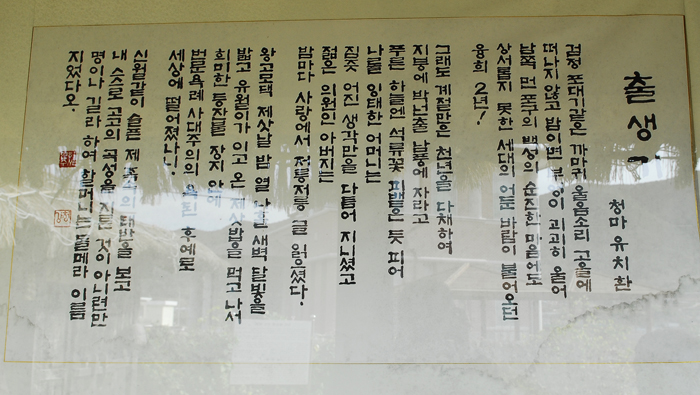 출생기
청마 유치환
검정 포대기같은 까마귀 울음소리 고을에
떠나지 않고 밤이면 부엉이 괴괴히 울어
남쪽 먼 포구의 백성의 순진한 마음에도
상서롭지 못한 세대의 어둔 바람이 불어오던
융희 2년!
그래도 계절만은 천년을 다채하여
지붕에 박넌출 남풍에 자라고
푸른 하늘엔 석류꽃 피뱉은 듯 피어
나를 잉태한 어머니는
짐짓 어진 생각만을 다듬어 지니셨고
젊은 의원인 아버지는
밤마다 사랑에서 저릉저릉 글 읽으셨다.
왕고모댁 제삿날 밤 열 나흘 새벽 달빛을
밟고 유월이가 이고 온 제삿밥을 먹고 나서
희미한 등잔불 장지 안에
번문욕례 사대주의의 욕된 후예로
세상에 떨어졌나니.
신월같이 슬픈 제 족속의 태반을 보고
내 스스로 고고의 곡성을 지른 것이 아니련만
명이나 길라 하여 할머니는 돌메라 이름
지었다오.